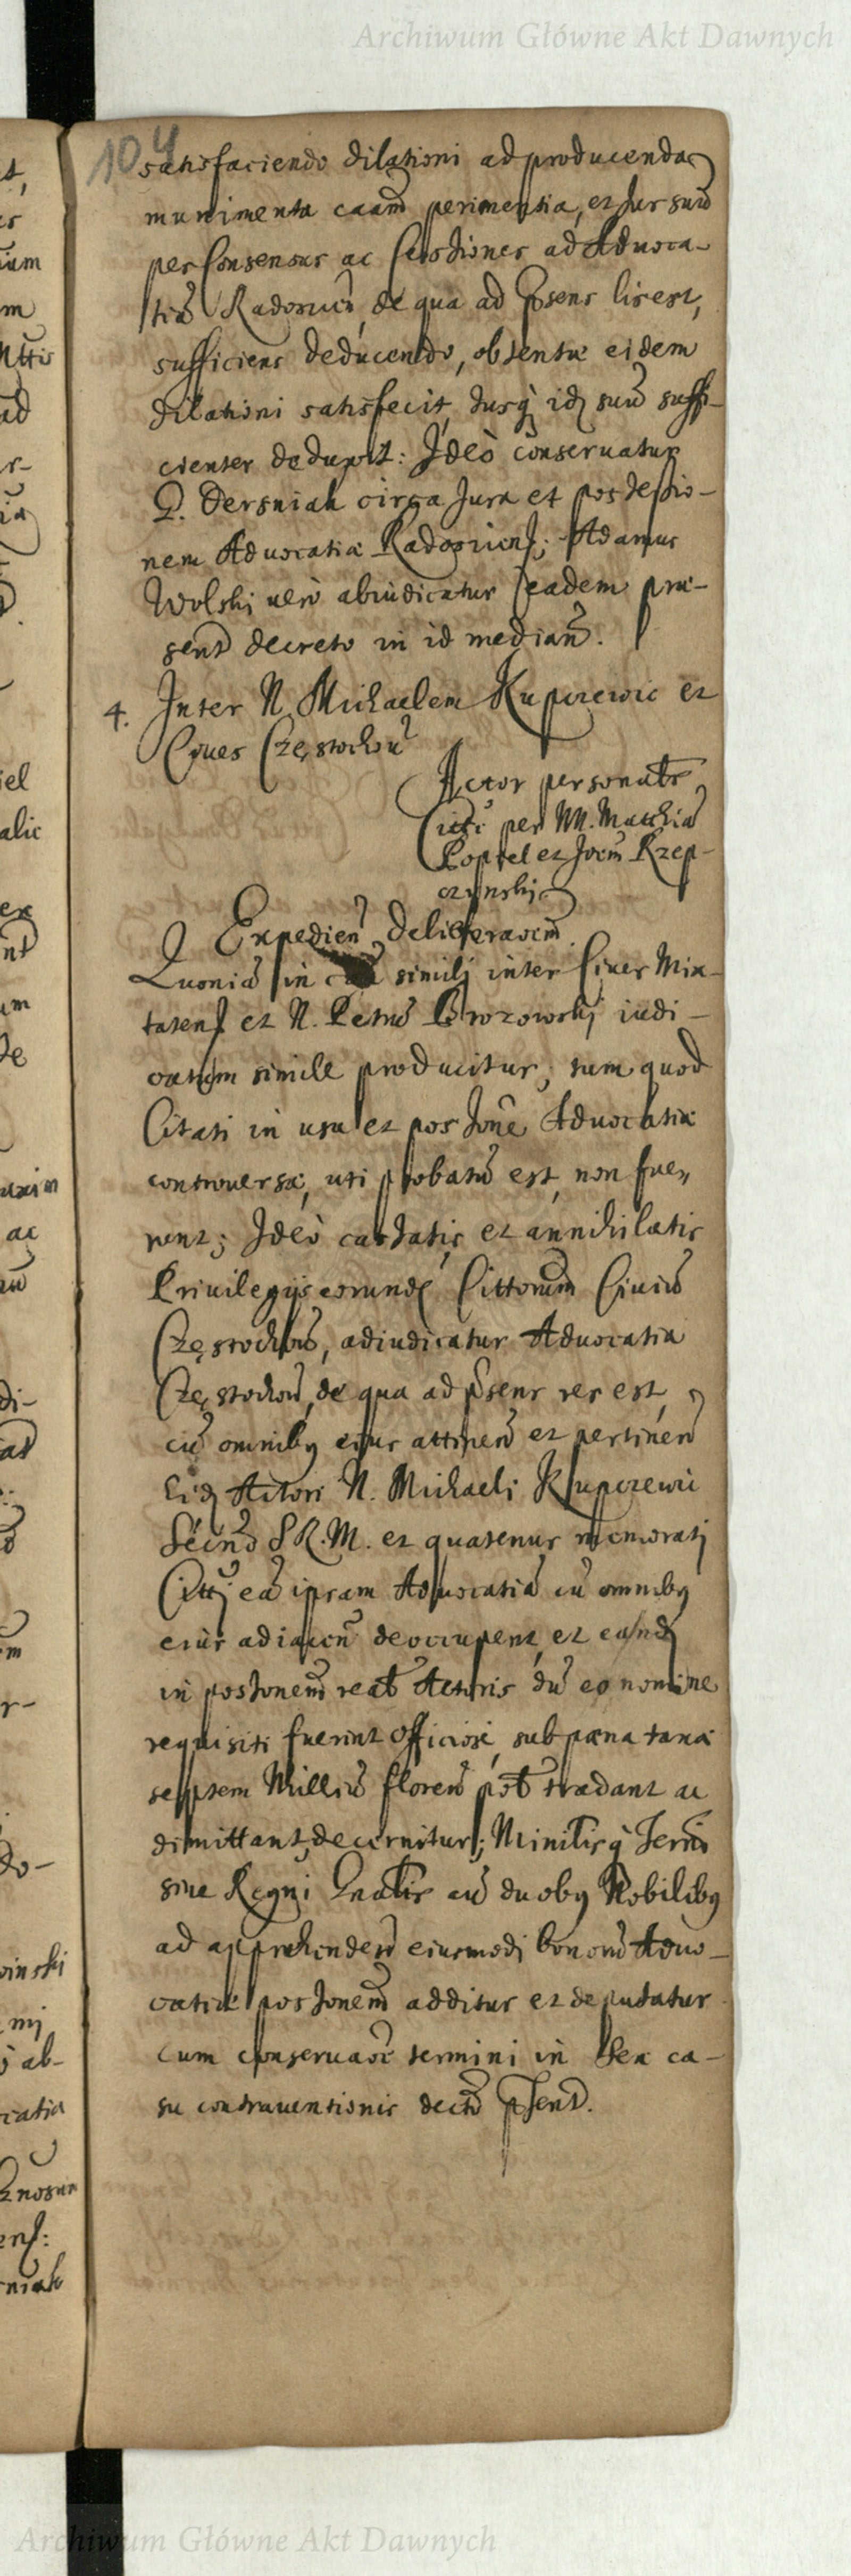 Archiwum Główne Akt Dawnych
104
satisfaciendo dilationi ad producenda
munimenta caam perimentia, et Jus suũ
per Consensus ac Cessiones ad Advoca-
tiã Rados de qua ad Psens lis est,
sufficiens deducendo, obtentæ eidem
dilationi satisfecit, Jusq̀ id suũ suffi-
cienter deduxit: Ideò conservatur
G. Dersniak circa Jura et possessio-
nem Advocatiæ Adamus
Wolski verò abiudicatur eadem præ-
senti decreto in id median̄.
4. Inter N. Michaelem Kupczewic et
Cives Częstochoũ
Actor personalr
Citti per NN. Matthiã
Poptel et Joem Rzep-
czynskj
Expedien̄ Deliberaoem
Quoniã in cãa similj inter Cives Mia-
tens et N. Petrũ Brozowskj iudi-
catum simile producitur, tum quod
Citati in usu et possione Advocatiæ
controversæ, uti probatũ est, non fue-
runt; Ideò cassatis et annihilatis
Privilegijs eorund Cittorum Civiũ
Częstochoũ, adiudicatur Advocatia
Częstochoũ, de qua ad psens res est,
cũ omnibq eius attinen̄ et pertinen̄
Eid Actori N. Michaeli Kupczewic
Secund S.R.M. et quatenus memoratj
Cittj eã ipsam Advocatiã cũ omnibq
eius adiacen̄ deoccupent, et eand
in possionem reał Actoris dũ eo nomine
requisiti fuerint officiosè, sub pæna tanæ
septem Milliũ floren̄ pół tradant ac
dimittant, decernitur; Minilisq̀
sive Regni Gnalis cũ duobq Nobilibq
ad apprehenden̄ eiusmodi bonorũ Advo-
catiæ possionem additur et deputatur
cum conservaoe termini in ca-
su contraventionis decto psenti.
Archiwum Główne Akt Dawnych